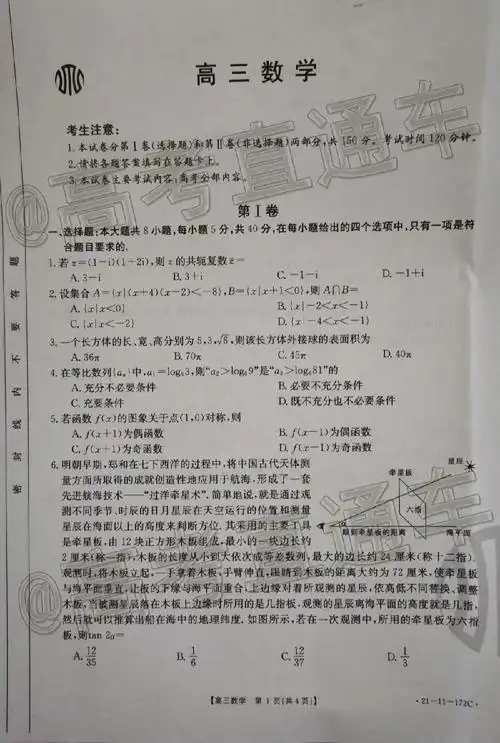 高三数学
考生注意:
1.本试卷分第Ⅰ卷(选择题)和第Ⅱ卷(非选择题)两部分,共150分。考试时间120分钟。
2.请将各题答案填写在答题卡上。
3.本试卷主要考试内容:高考全部内容。
第Ⅰ卷
一、选择题:本大题共8小题,每小题5分,共40分,在每小题给出的四个选项中,只有一项是符
合题目要求的.
1.若z=(1-i)(1+2i),则z的共轭复数z̄=
A.3-i B.3+i C.-1-i D.-1+i
2.设集合A={x|(x+4)(x-2)<-8},B={x|x+1<0},则A∩B=
A.{x|x<0} B.{x|-2<x<-1}
C.{x|x<-2} D.{x|-4<x<-1}
3.一个长方体的长、宽、高分别为5,3,√6,则该长方体外接球的表面积为
A.36π B.70π C.45π D.40π
4.在等比数列{aₙ}中,a₁=log₆3,则“a₂>log₆9”是“a₃>log₆81”的
A.充分不必要条件 B.必要不充分条件
C.充要条件 D.既不充分也不必要条件
5.若函数f(x)的图象关于点(1,0)对称,则
A.f(x+1)为偶函数 B.f(x-1)为偶函数
C.f(x+1)为奇函数 D.f(x-1)为奇函数
6.明朝早期,郑和在七下西洋的过程中,将中国古代天体测
量方面所取得的成就创造性地应用于航海,形成了一套
先进航海技术——“过洋牵星术”.简单地说,就是通过观
测不同季节、时辰的日月星辰在天空运行的位置和测量
星辰在海面以上的高度来判断方位.其采用的主要工具
是牵星板,由12块正方形木板组成,最小的一块边长约
2厘米(称一指),木板的长度从小到大依次成等差数列,最大的边长约24厘米(称十二指).
观测时,将木板立起,一手拿着木板,手臂伸直,眼睛到木板的距离大约为72厘米,使牵星板
与海平面垂直,让板的下缘与海平面重合,上边缘对着所观测的星辰,依高低不同替换、调整
木板,当被测星辰落在木板上边缘时所用的是几指板,观测的星辰离海平面的高度就是几指,
然后就可以推算出船在海中的地理纬度.如图所示,若在一次观测中,所用的牵星板为六指
板,则tan 2α=
A.12/35 B.1/6 C.12/37 D.1/3
星辰
牵星板
六指
α
眼到牵星板的距离
海平面
【高三数学 第1页(共4页)】
·21-11-172C·
密 封 线 内 不 要 答 题
@高考直通车
@高考直通车